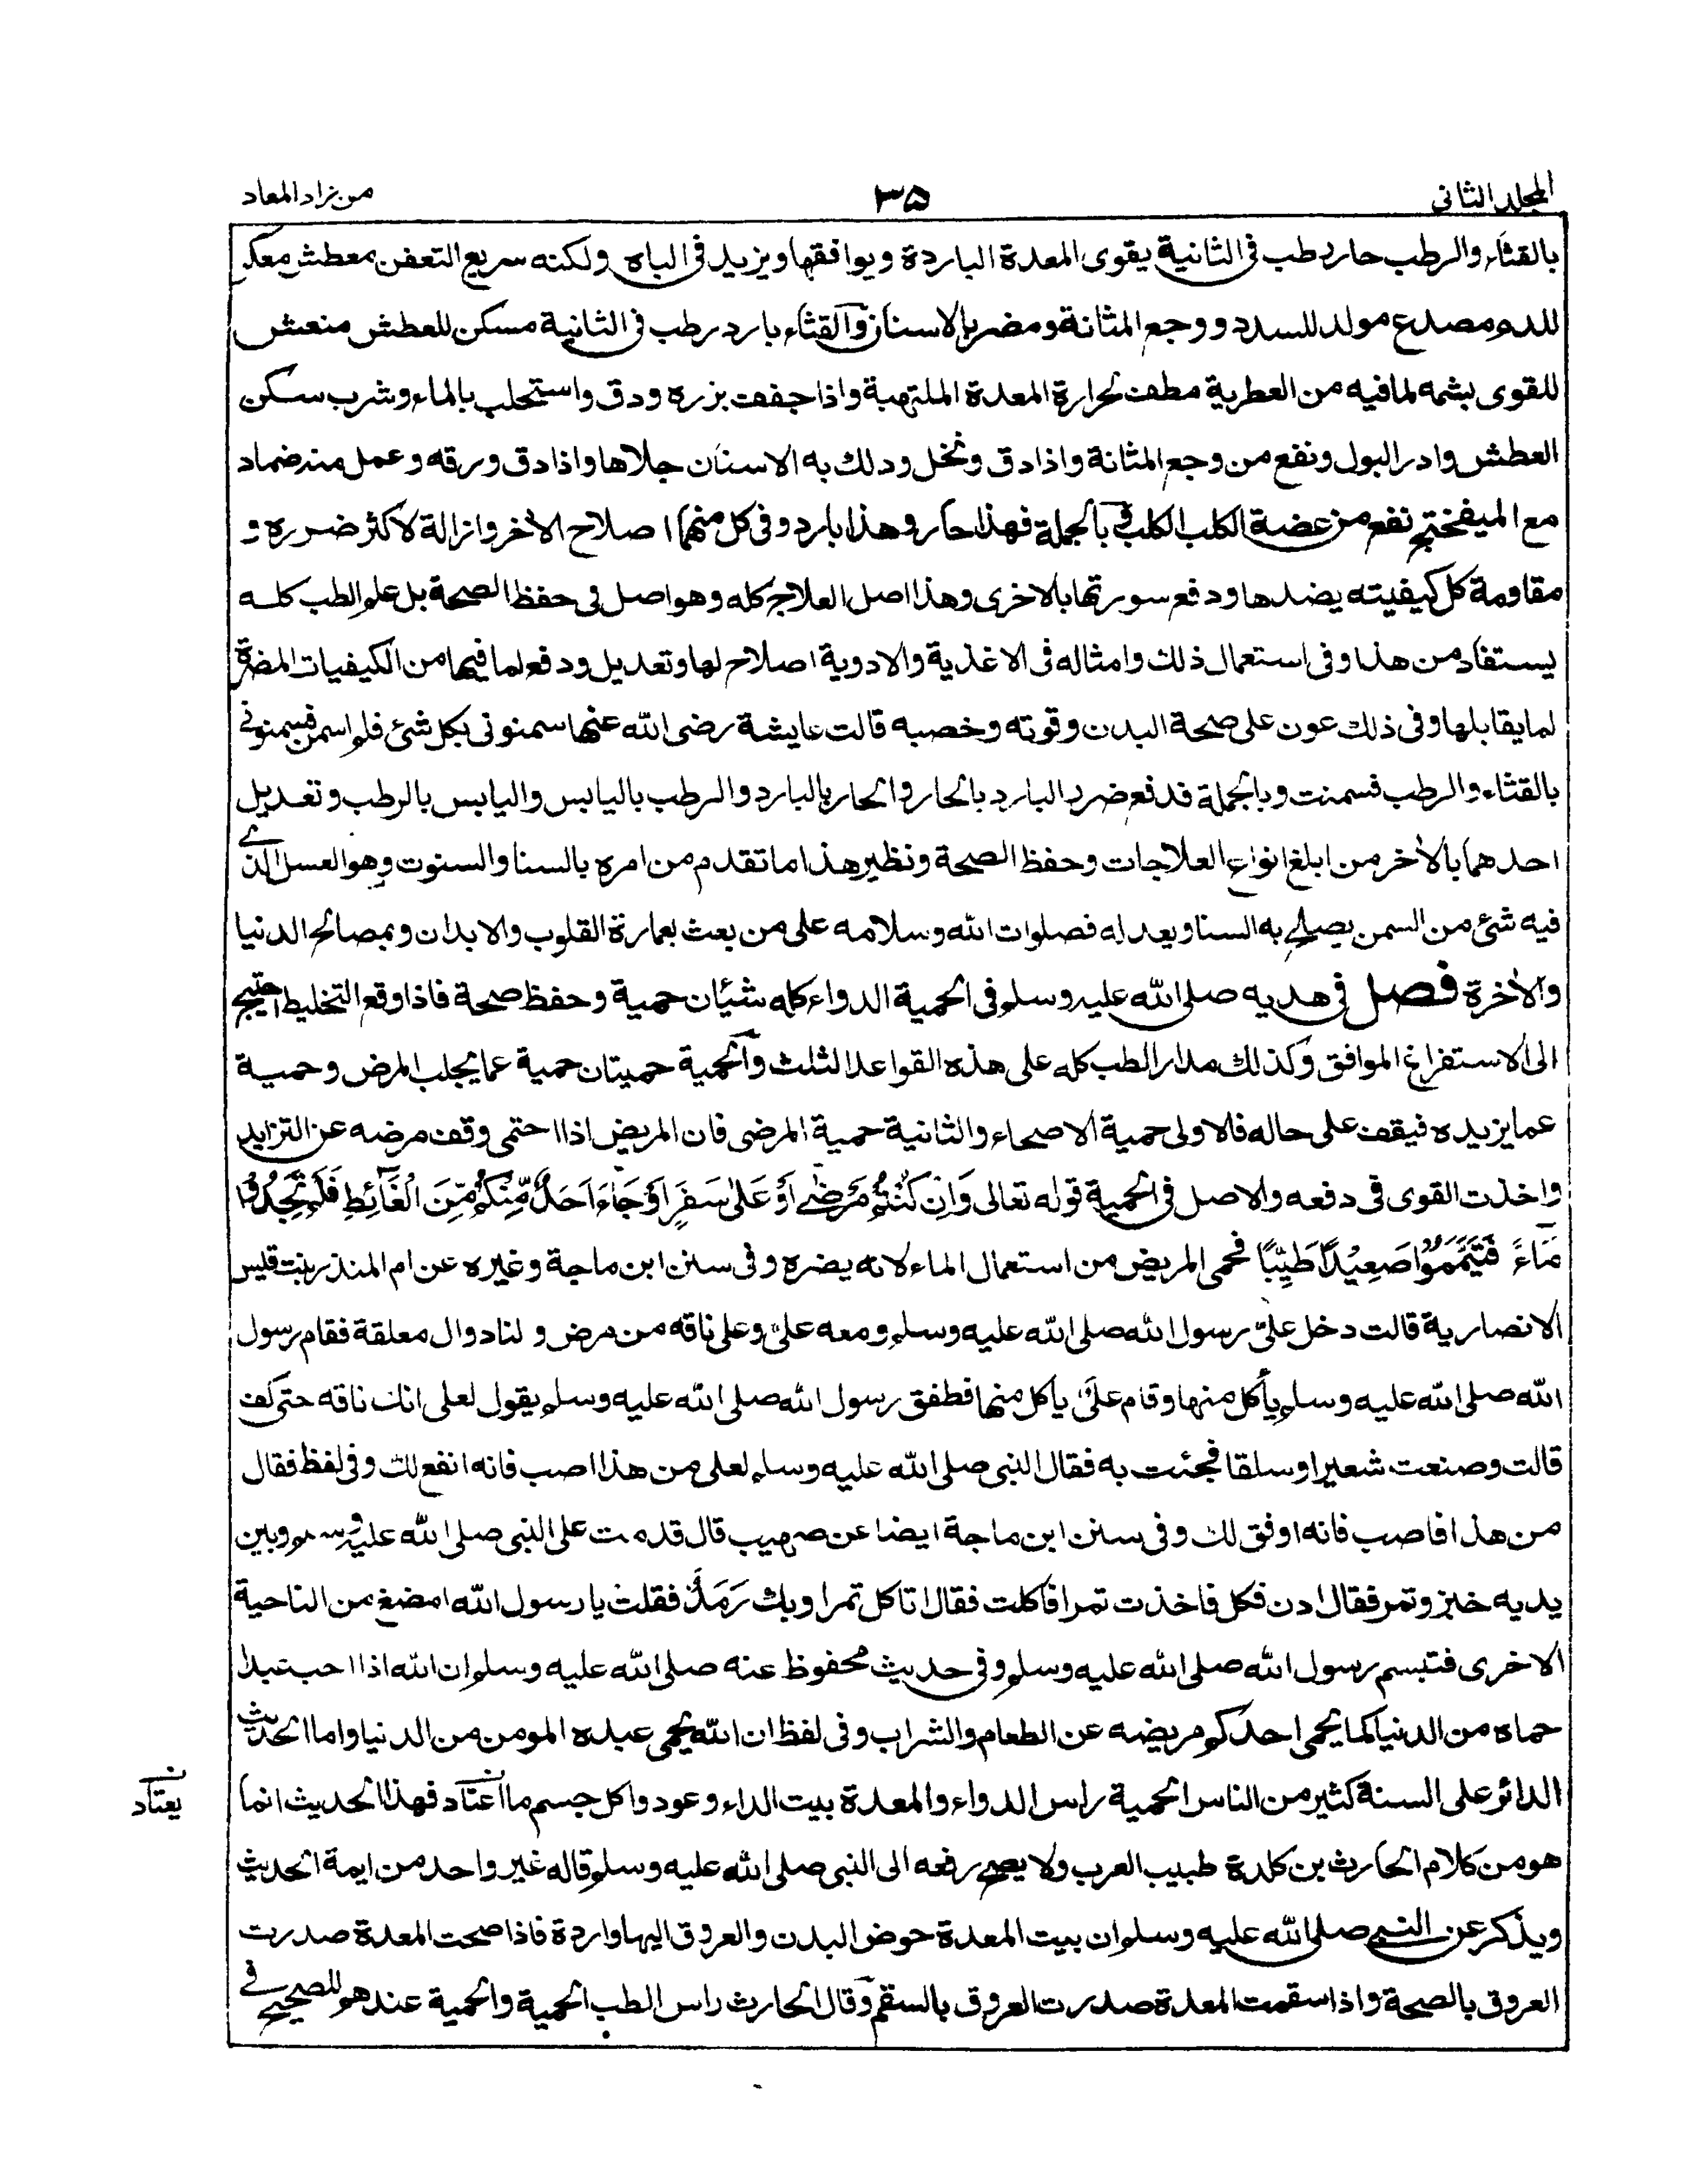 المجلد الثانى
٣٥
من زاد المعاد
بالقثاء والرطب حار رطب فى الثانية يقوى المعدة الباردة ويوافقها ويزيد فى الباه ولكنه سريع التعفن معطش معكر
للدم مصدع مولد للسدد ووجع المثانة ومضر بالاسنان والقثاء بارد رطب فى الثانية مسكن للعطش منعش
للقوى بشمه لما فيه من العطرية مطفئ لحرارة المعدة الملتهبة واذا جفف بزره ودق واستحلب بالماء وشرب سكن
العطش وادر البول ونفع من وجع المثانة واذا دق ونخل ودلك به الاسنان جلاها واذا دق ورقه وعمل منه ضماد
مع الميفختج نفع من عضة الكلب الكلب وبالجملة فهذا حار وهذا بارد وفى كل منهما اصلاح الآخر وازالة لاكثر ضرره و
مقاومة كل كيفيته بضدها ودفع سورتها بالاخرى وهذا اصل العلاج كله وهو اصل فى حفظ الصحة بل علم الطب كله
يستفاد من هذا وفى استعمال ذلك وامثاله فى الاغذية والادوية اصلاح لها وتعديل ودفع لما فيها من الكيفيات المضرة
لما يقابلها وفى ذلك عون على صحة البدن وقوته وخصبه قالت عايشة رضى الله عنها سمنونى بكل شئ فلم اسمن فسمنونى
بالقثاء والرطب فسمنت وبالجملة فدفع ضرر البارد بالحار والحار بالبارد والرطب باليابس واليابس بالرطب وتعديل
احدهما بالآخر من ابلغ انواع العلاجات وحفظ الصحة ونظير هذا ما تقدم من امره بالسنا والسنوت وهو العسل الذى
فيه شئ من السمن يصلح به السنا ويعدله فصلوات الله وسلامه على من بعث بعمارة القلوب والابدان وبمصالح الدنيا
والآخرة فصل فى هديه صلى الله عليه وسلم فى الحمية الدواء كله شيئان حمية وحفظ صحة فاذا وقع التخليط احتيج
الى الاستفراغ الموافق وكذلك مدار الطب كله على هذه القواعد الثلث والحمية حميتان حمية عما يجلب المرض وحمية
عما يزيده فيقف على حاله فالاولى حمية الاصحاء والثانية حمية المرضى فان المريض اذا احتمى وقف مرضه عن التزايد
واخذت القوى فى دفعه والاصل فى الحمية قوله تعالى وَاِنْ كُنْتُمْ مَرْضٰى اَوْ عَلٰى سَفَرٍ اَوْ جَاءَ اَحَدٌ مِّنْكُمْ مِّنَ الْغَآئِطِ فَلَمْ تَجِدُوْا
مَآءً فَتَيَمَّمُوْا صَعِيْدًا طَيِّبًا فحمى المريض من استعمال الماء لانه يضره وفى سنن ابن ماجة وغيره عن ام المنذر بنت قيس
الانصارية قالت دخل علىّ رسول الله صلى الله عليه وسلم ومعه علىّ وعلى ناقه من مرض ولنا دوال معلقة فقام رسول
الله صلى الله عليه وسلم يأكل منها وقام علىّ يأكل منها فطفق رسول الله صلى الله عليه وسلم يقول لعلى انك ناقه حتى كف
قالت وصنعت شعيرا وسلقا فجئت به فقال النبى صلى الله عليه وسلم لعلى من هذا اصب فانه انفع لك وفى لفظ فقال
من هذا فاصب فانه اوفق لك وفى سنن ابن ماجة ايضا عن صهيب قال قدمت على النبى صلى الله عليه وسلم وبين
يديه خبز وتمر فقال ادن فكل فاخذت تمرا فاكلت فقال اتاكل تمرا وبك رَمَدٌ فقلت يا رسول الله امضغ من الناحية
الاخرى فتبسم رسول الله صلى الله عليه وسلم وفى حديث محفوظ عنه صلى الله عليه وسلم ان الله اذا احب عبدا
حماه من الدنيا كما يحمى احدكم مريضه عن الطعام والشراب وفى لفظ ان الله يحمى عبده المومن من الدنيا واما الحديث
الدائر على السنة كثير من الناس الحمية راس الدواء والمعدة بيت الداء وعودوا كل جسم ما اعتاد فهذا الحديث انما
يعتاد
هو من كلام الحارث بن كلدة طبيب العرب ولا يصح رفعه الى النبى صلى الله عليه وسلم قاله غير واحد من ايمة الحديث
ويذكر عن النبى صلى الله عليه وسلم ان بيت المعدة حوض البدن والعروق اليها واردة فاذا صحت المعدة صدرت
العروق بالصحة واذا سقمت المعدة صدرت العروق بالسقم وقال الحارث راس الطب الحمية والحمية عندهم للصحيح فى